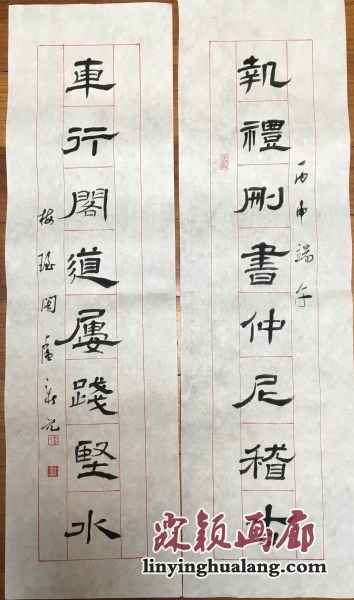 執禮刪書仲尼稽古
丙申端午
車行閣道屢踐堅水
梅瑤閣
霖颖画廊
linyinghualang.com